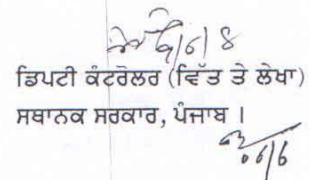 ਡਿਪਟੀ ਕੰਟਰੋਲਰ (ਵਿੱਤ ਤੇ ਲੇਖਾ)
ਸਥਾਨਕ ਸਰਕਾਰ, ਪੰਜਾਬ ।